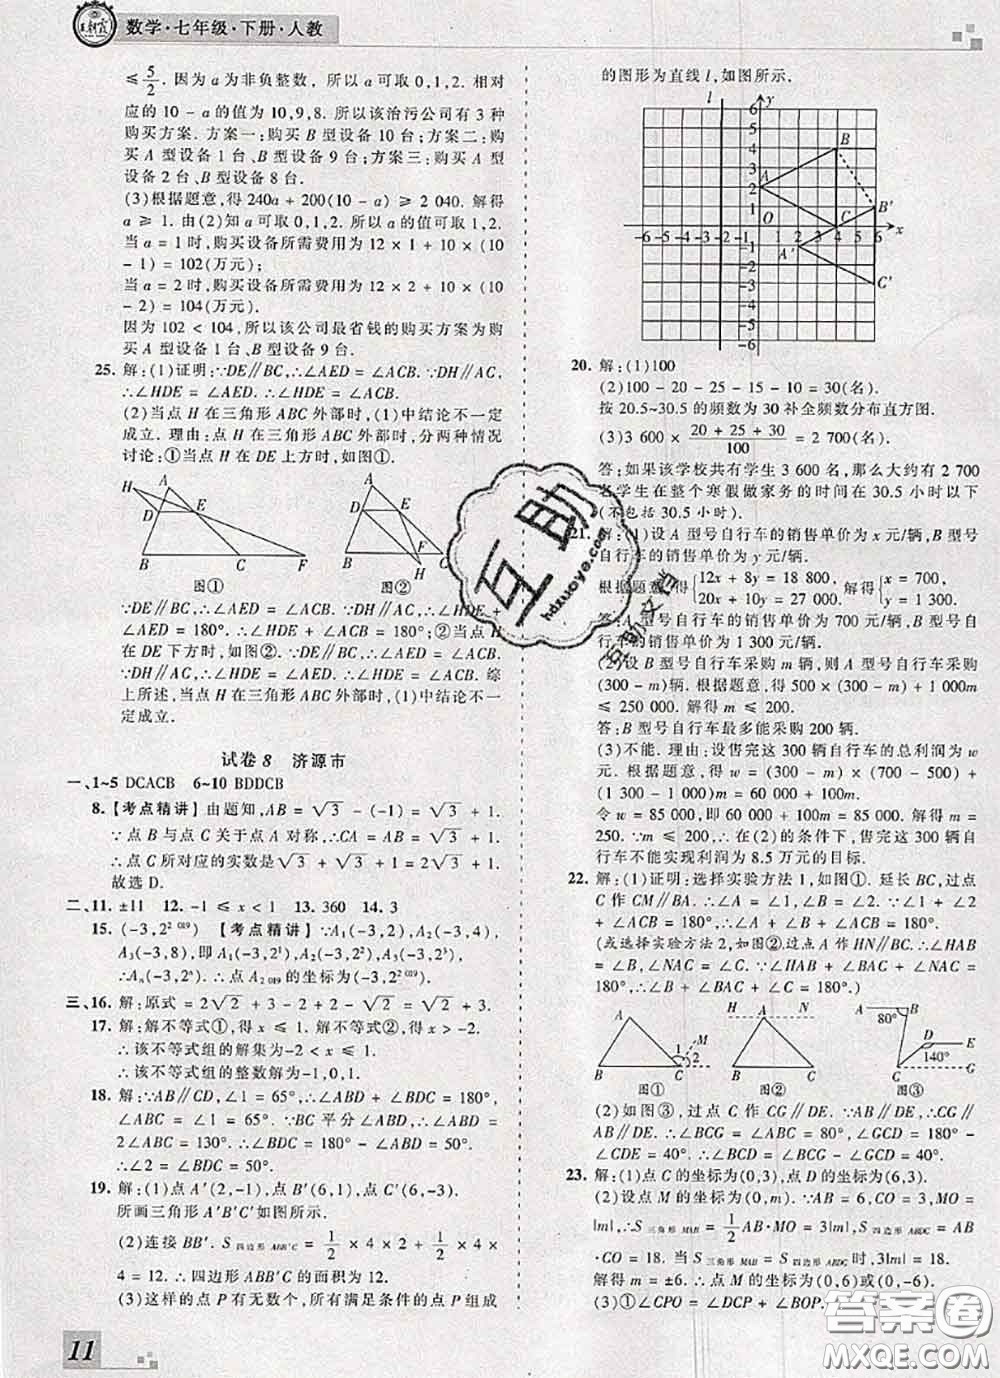 王朝霞
数学·七年级·下册·人教
≤5/2. 因为 a 为非负整数，所以 a 可取 0,1,2. 相对
应的 10 - a 的值为 10,9,8. 所以该治污公司有 3 种
购买方案. 方案一:购买 B 型设备 10 台;方案二:购
买 A 型设备 1 台、B 型设备 9 台;方案三:购买 A 型
设备 2 台、B 型设备 8 台.
(3)根据题意,得 240a + 200(10 - a) ≥ 2 040. 解得
a ≥ 1. 由(2)知 a 可取 0,1,2. 所以 a 的值可取 1,2.
当 a = 1 时,购买设备所需费用为 12 × 1 + 10 × (10
- 1) = 102(万元);
当 a = 2 时,购买设备所需费用为 12 × 2 + 10 × (10
- 2) = 104(万元).
因为 102 < 104,所以该公司最省钱的购买方案为购
买 A 型设备 1 台、B 型设备 9 台.
25. 解:(1)证明:∵DE∥BC,∴∠AED = ∠ACB. ∵DH∥AC,
∴∠HDE = ∠AED. ∴∠HDE = ∠ACB.
(2)当点 H 在三角形 ABC 外部时,(1)中结论不一定
成立. 理由:当点 H 在三角形 ABC 外部时,分两种情况
讨论:①当点 H 在 DE 上方时,如图①.
H A D E B C F 图①
A D E B C F H 图②
∵DE∥BC,∴∠AED = ∠ACB. ∵DH∥AC,∴∠HDE +
∠AED = 180°. ∴∠HDE + ∠ACB = 180°;②当点 H
在 DE 下方时,如图②. ∵DE∥BC,∴∠AED = ∠ACB.
∵DH∥AC,∴∠HDE = ∠AED. ∴∠HDE = ∠ACB. 综
上所述,当点 H 在三角形 ABC 外部时,(1)中结论不一
定成立.
试卷 8 济源市
一、1~5 DCACB 6~10 BDDCB
8.【考点精讲】由题知,AB = √3 - (-1) = √3 + 1.
∵点 B 与点 C 关于点 A 对称,∴CA = AB = √3 + 1.
∴点 C 所对应的实数是√3 + √3 + 1 = 2√3 + 1.
故选 D.
二、11. ±11 12. -1 ≤ x < 1 13. 360 14. 3
15. (-3,2^2 019) 【考点精讲】∵A₁(-3,2),A₂(-3,4),
A₃(-3,8),即 A₁(-3,2),A₂(-3,2²),A₃(-3,2³),
∴Aₙ(-3,2ⁿ). ∴点 A₂ ₀₁₉的坐标为(-3,2^2 019).
三、16. 解:原式 = 2√2 + 3 - 2 + 2 - √2 = √2 + 3.
17. 解:解不等式①,得 x ≤ 1. 解不等式②,得 x > -2.
∴该不等式组的解集为-2 < x ≤ 1.
∴该不等式组的整数解为-1,0,1.
18. 解:∵AB∥CD,∠1 = 65°,∴∠ABD + ∠BDC = 180°,
∠ABC = ∠1 = 65°. ∵BC 平分∠ABD,∴∠ABD =
2∠ABC = 130°. ∴∠BDC = 180° - ∠ABD = 50°.
∴∠2 = ∠BDC = 50°.
19. 解:(1)点 A′(2,-1),点 B′(6,1),点 C′(6,-3).
所画三角形 A′B′C′如图所示.
(2)连接 BB′. S四边形 ABB′C = 1/2 × 4 × 2 + 1/2 × 4 ×
4 = 12. ∴四边形 ABB′C 的面积为 12.
(3)这样的点 P 有无数个,所有满足条件的点 P 组成
11
的图形为直线 l,如图所示.
l y 6 5 4 3 2 1 O -6 -5 -4 -3 -2 -1 1 2 3 4 5 6 x -1 -2 -3 -4 -5 -6 A B C A′ B′ C′
20. 解:(1)100
(2)100 - 20 - 25 - 15 - 10 = 30(名).
按 20.5~30.5 的频数为 30 补全频数分布直方图.
(3)3 600 × (20 + 25 + 30)/100 = 2 700(名).
答:如果该学校共有学生 3 600 名,那么大约有 2 700
名学生在整个寒假做家务的时间在 30.5 小时以下
(不包括 30.5 小时).
21. 解:(1)设 A 型号自行车的销售单价为 x 元/辆,B 型号
自行车的销售单价为 y 元/辆.
根据题意,得{12x + 8y = 18 800, 20x + 10y = 27 000. 解得{x = 900, y = 1 000.
答:A 型号自行车的销售单价为 900 元/辆,B 型号自
行车的销售单价为 1 300 元/辆.
(2)设 B 型号自行车采购 m 辆,则 A 型号自行车采购
(300 - m)辆. 根据题意,得 500 × (300 - m) + 1 000m
≤ 250 000. 解得 m ≤ 200.
答:B 型号自行车最多能采购 200 辆.
(3)不能. 理由:设售完这 300 辆自行车的总利润为 w
元. 根据题意,得 w = (900 - 500) × (300 - m) +
(1 300 - 1 000)m = 120 000 - 100m.
令 w = 85 000,即 60 000 + 100m = 85 000. 解得 m =
250. ∵m ≤ 200,∴在(2)的条件下,售完这 300 辆
自行车不能实现利润为 8.5 万元的目标.
22. 解:(1)证明:选择实验方法 1,如图①. 延长 BC,过点
C 作 CM∥BA. ∴∠A = ∠1,∠B = ∠2. ∵∠1 + ∠2
+ ∠ACB = 180°,∴∠A + ∠B + ∠ACB = 180°.
(或选择实验方法 2,如图②.过点 A 作 HN∥BC. ∴∠HAB
= ∠B,∠NAC = ∠C. ∵∠HAB + ∠BAC + ∠NAC =
180°,∴∠B + ∠BAC + ∠C = 180°.)
A M 1 2 B C 图①
H A N B C 图②
A B 80° D E 140° C G 图③
(2)如图③,过点 C 作 CG∥DE. ∵AB∥DE,∴CG∥
AB∥DE. ∴∠BCG = ∠ABC = 80°,∠GCD = 180° -
∠CDE = 40°. ∴∠BCD = ∠BCG - ∠GCD = 40°.
23. 解:(1)点 C 的坐标为(0,3),点 D 的坐标为(6,3).
(2)设点 M 的坐标为(0,m). ∵AB = 6,CO = 3,MO =
|m|,∴S三角形 MAB = 1/2 AB·MO = 3|m|,S四边形 ABDC = AB
·CO = 18. 当 S三角形 MAB = S四边形 ABDC时,3|m| = 18.
解得 m = ±6. ∴点 M 的坐标为(0,6)或(0,-6).
(3)①∠CPO = ∠DCP + ∠BOP.
互助
hdzuoye.com
互助文档
答案圈
MXQE.COM